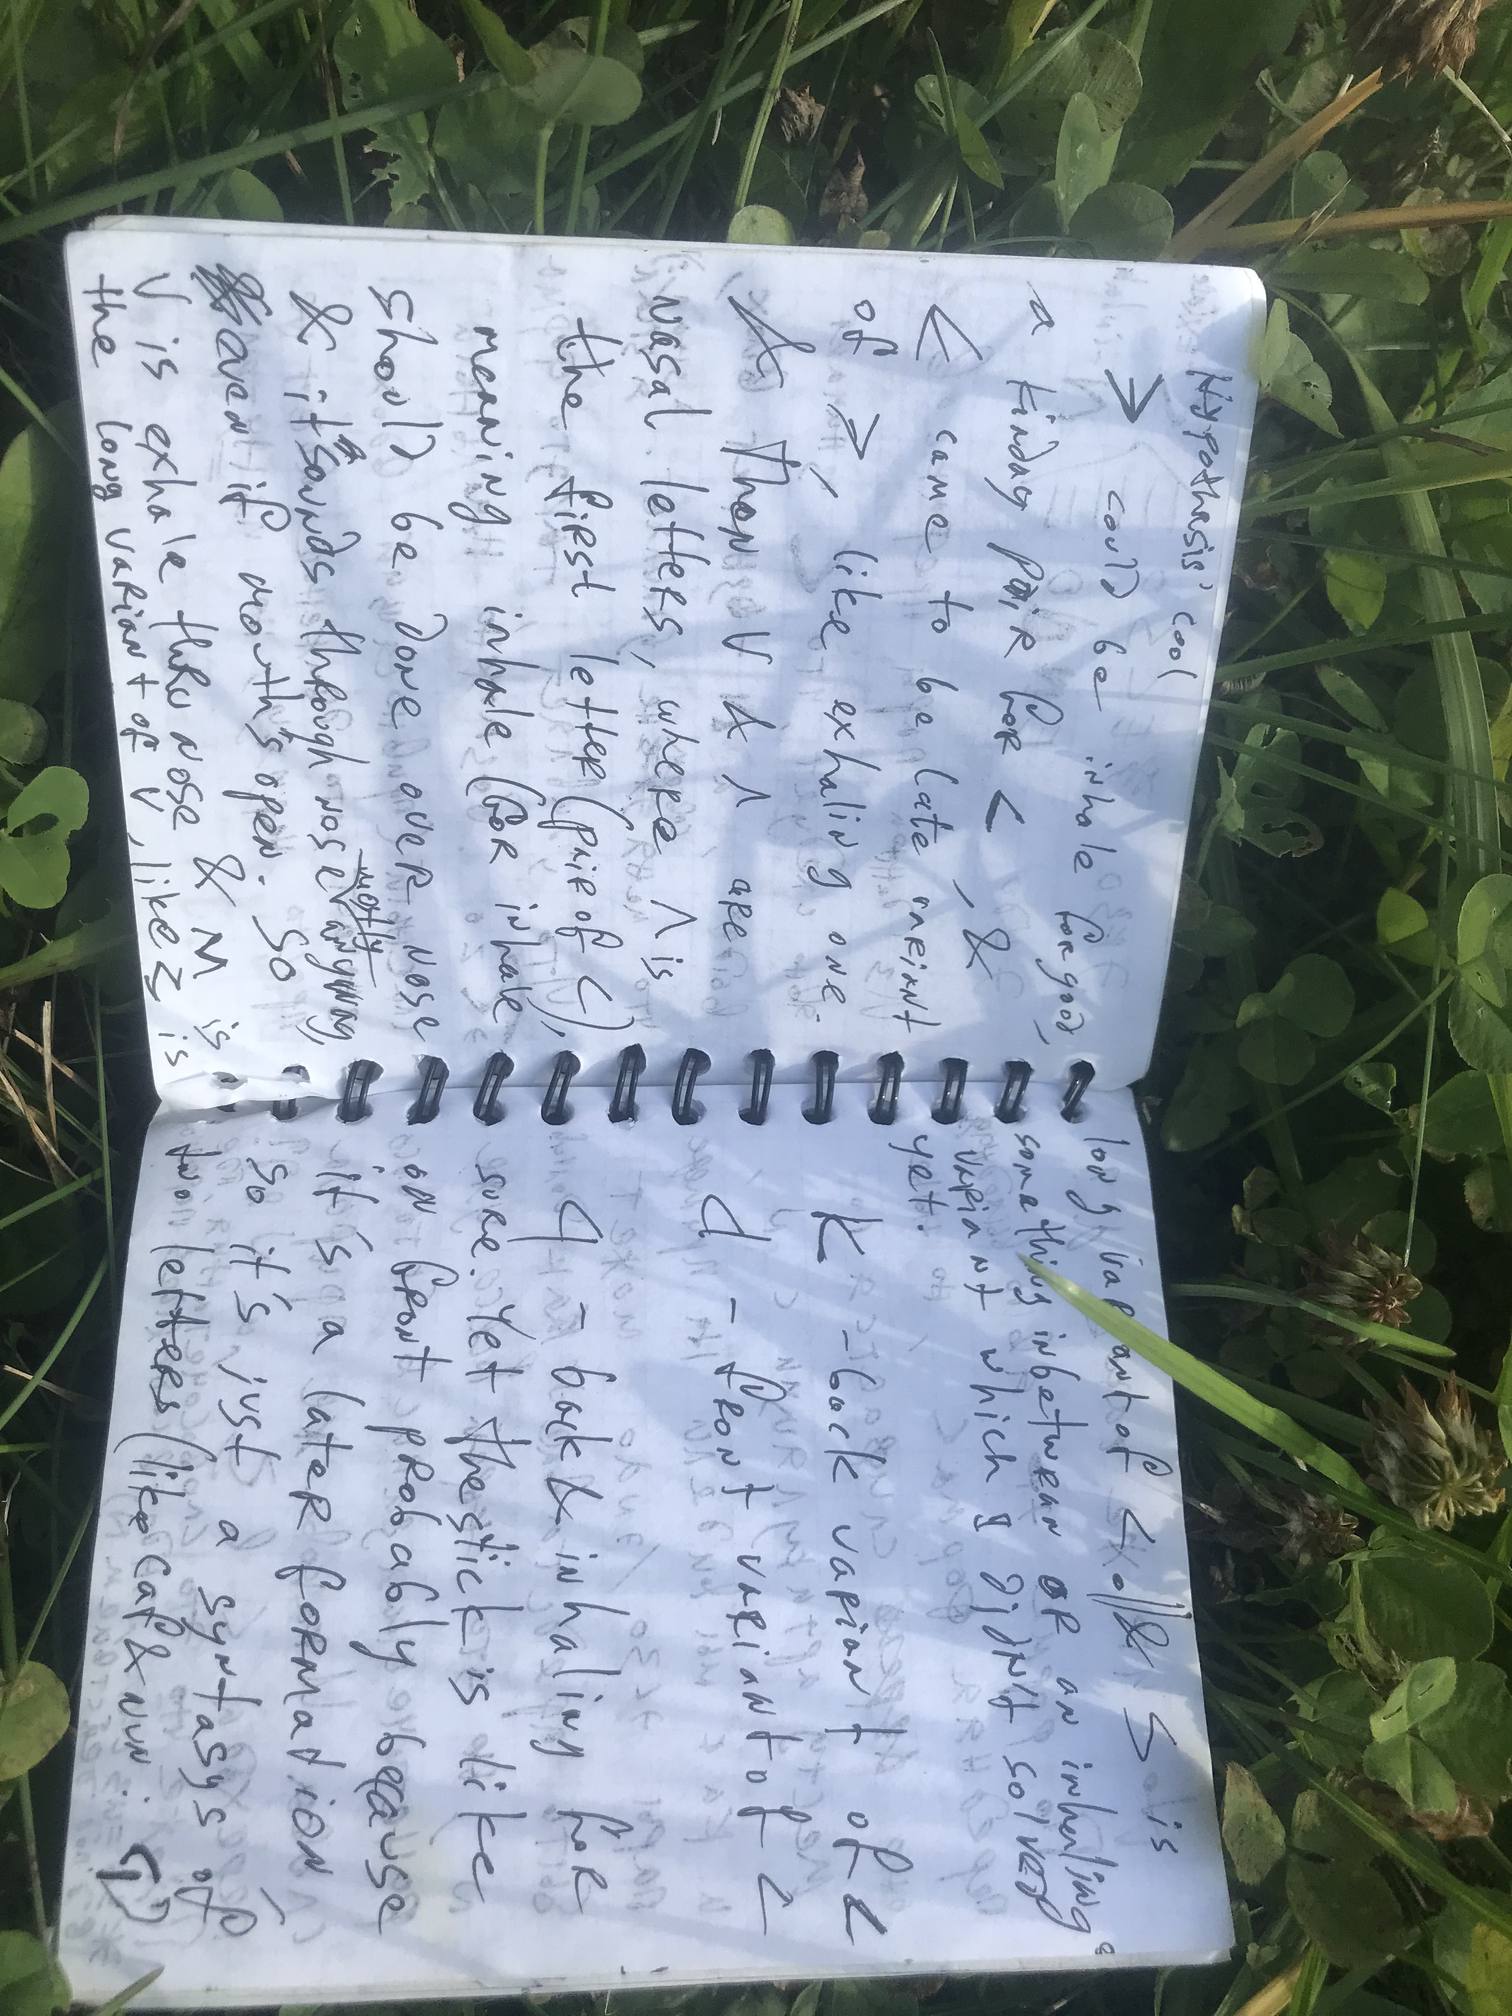 Hypothesis' cool
→ could be inhale for good,
a kinday pair for <, &
< came to be late vareiant
of >, like exhaling one.
& Then V & Λ are
nasal letters, where Λ is
the first letter (pair of <),
meaning inhale (for inhale
should be done over nose
& it sounds through nose mostly anyway
even if mouth's open. So
V is exhale thru nose & M is
the long variant of V, like Σ is
long variant of < & S is
something inbetween or an inhaling
variant which I didnt solved
yet.
K - back variant of <
d - front variant of <
q - back & inhaling for
sure. Yet the stick is like
on front probably because
it's a later formation
so it's just a syntasys of
two letters (like caf & nun q)